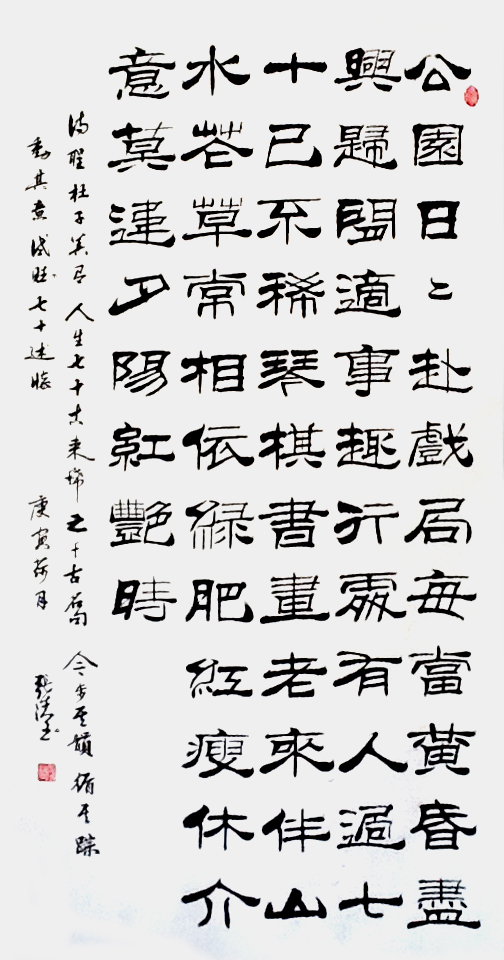 公園日〻赴戲局每當黃昏盡
興歸閒適事趣行處有人過七
十已不稀琴棋書畫老來伴山
水花草常相依綠肥紅瘦休介
意莫違夕陽紅豔時
詩聖杜子美有人生七十古來稀之千古名句 今步其韻循其踪
其意 七十述懷 庚寅荷月 張清玉